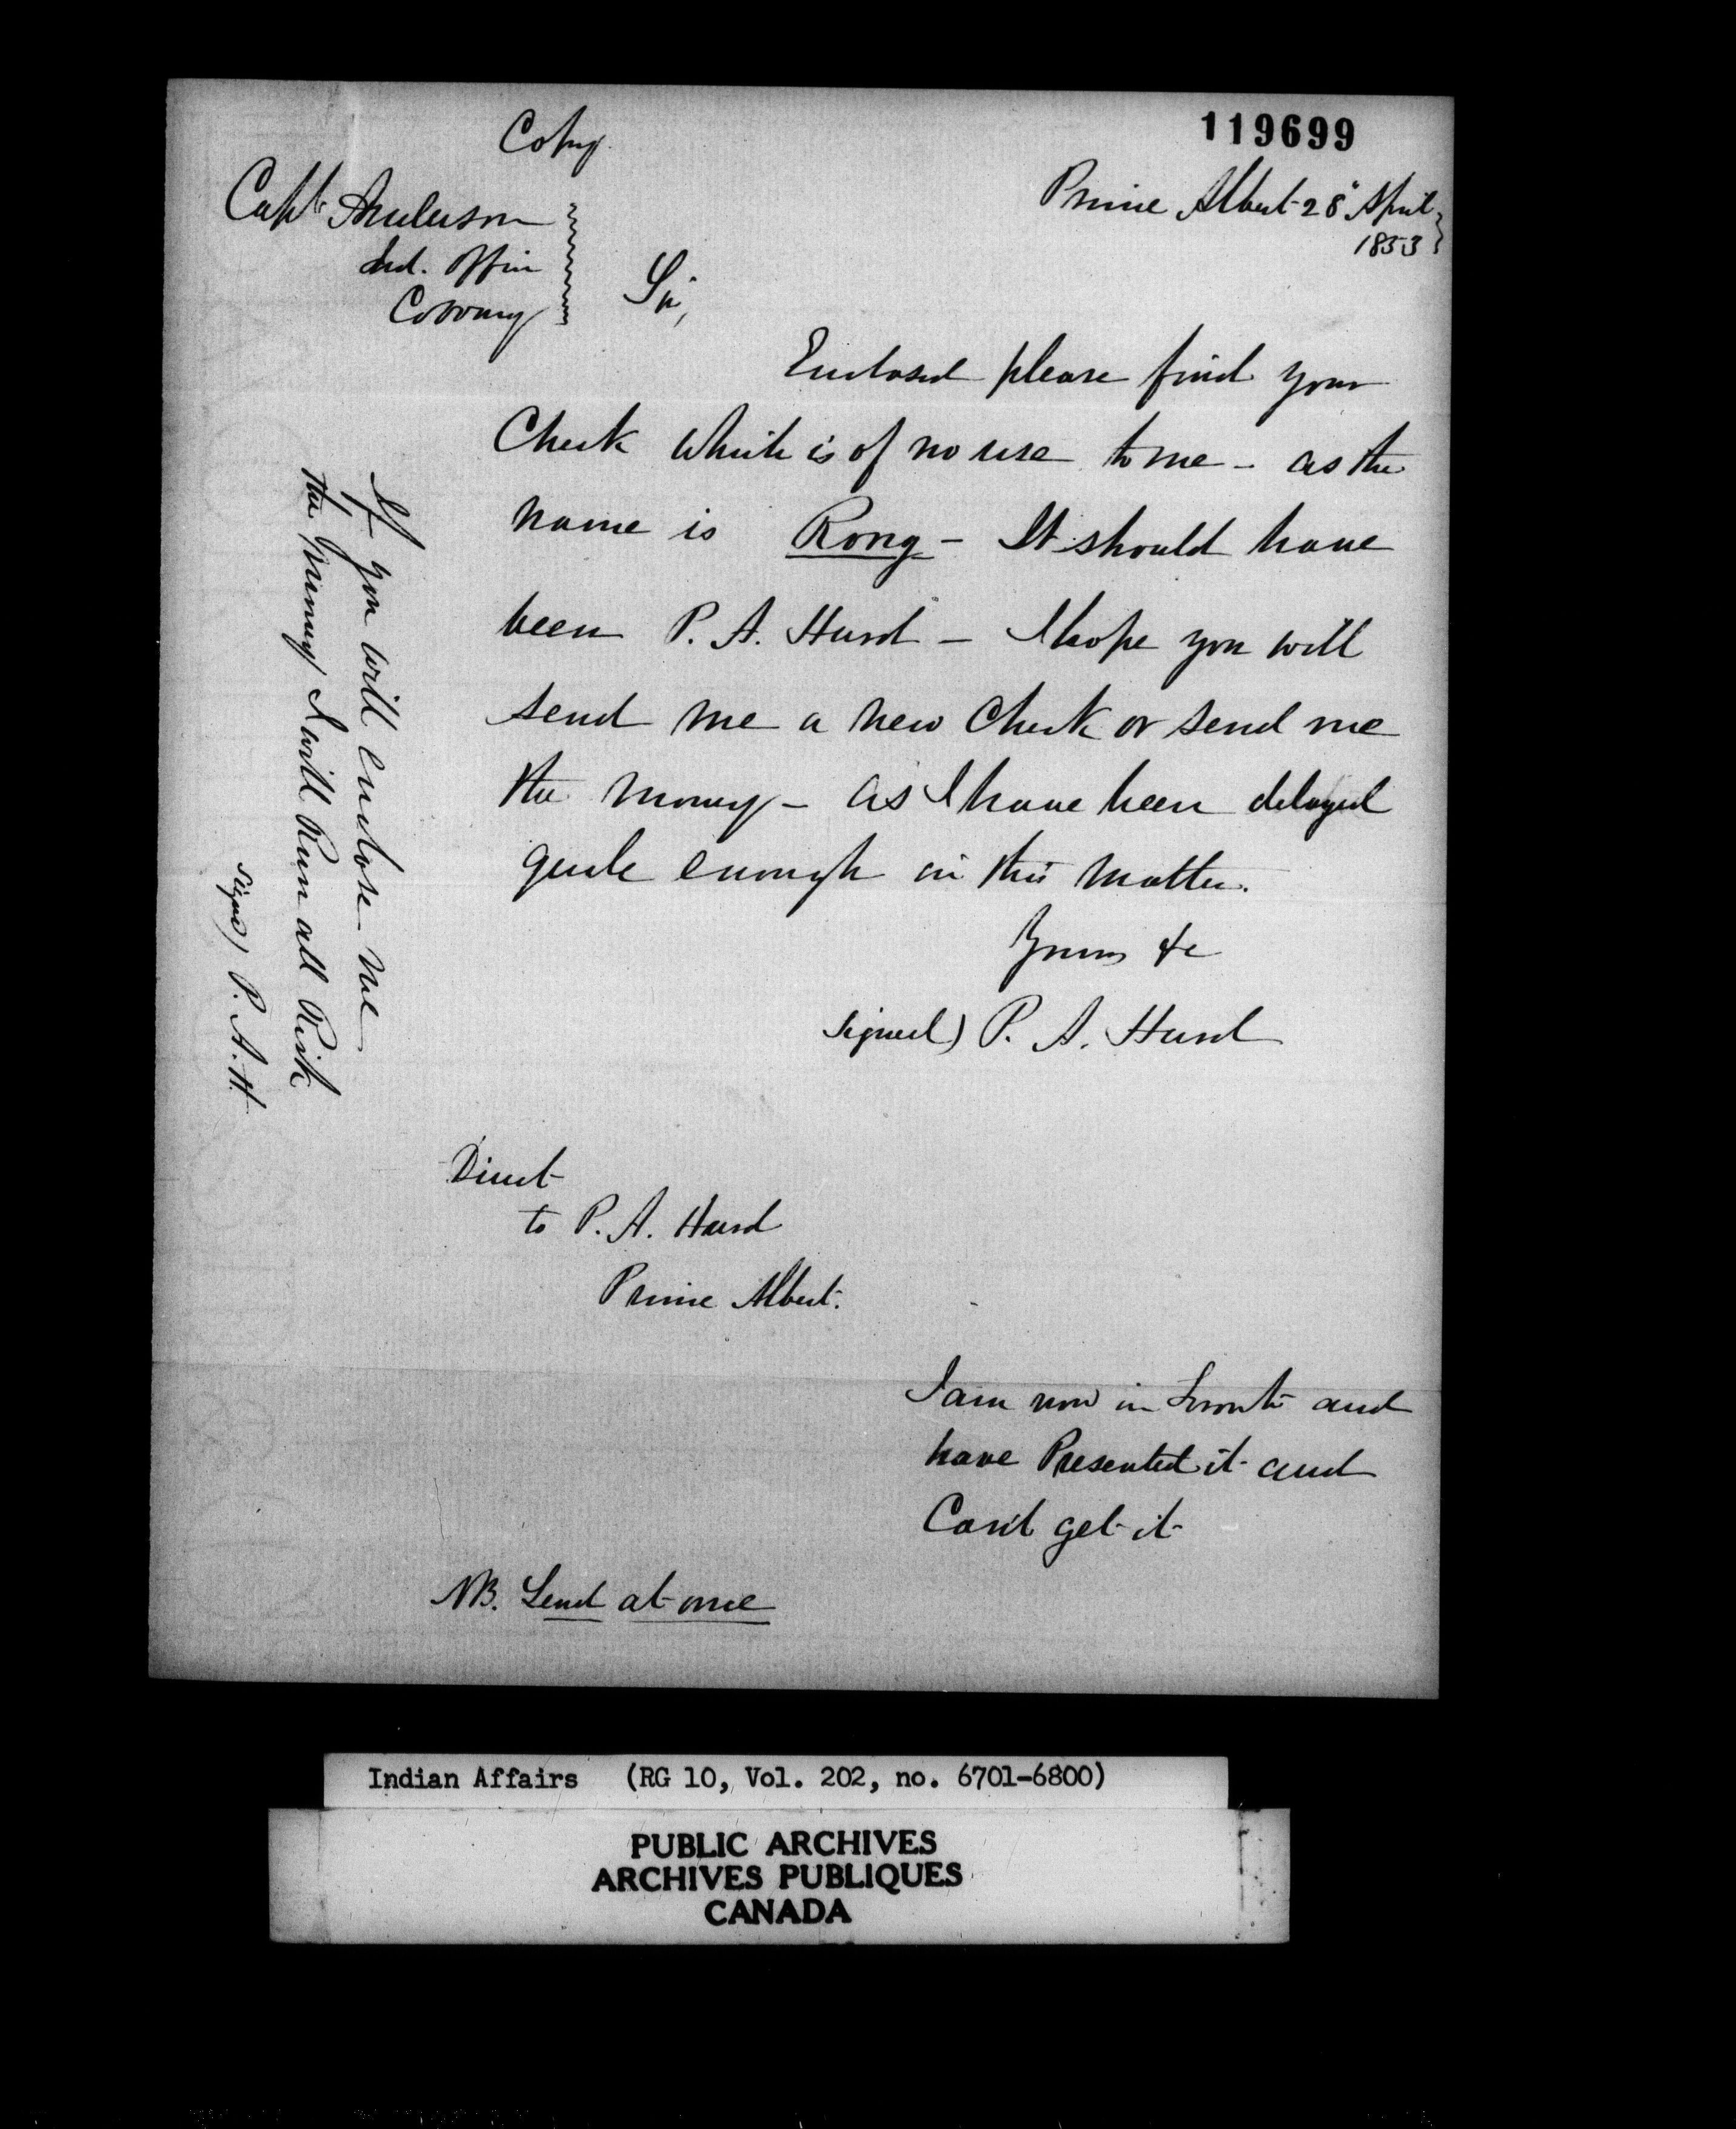 Copy
119699
Prince Albert 28" April
1853
Capt Anderson
Ind. Office
Cobourg
Sir,
Enclosed please find your
Check which is of no use to me - as the
name is Rong - It should have
been P. A. Hurd - I hope you will
send me a new Check or send me
the money - as I have been delayed
quite enough in this matter.
Yours &c
Signed) P. A. Hurd
If you will enclose me
the money I will Run all Risk
Signed) P. A. H.
Direct
to P. A. Hurd
Prince Albert.
I am now in Toronto and
have Presented it and
Can't get it
NB. Send at once
Indian Affairs (RG 10, Vol. 202, no. 6701-6800)
PUBLIC ARCHIVES
ARCHIVES PUBLIQUES
CANADA